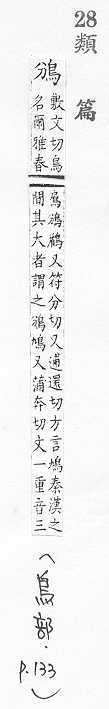 28 類篇
鳻
敷文切鳥
名爾雅春
鳸鳻鶞又符分切又逋還切方言鳩秦漢之
間其大者謂之鳻鳩又蒲奔切文一重音三
(鳥部·p.133)